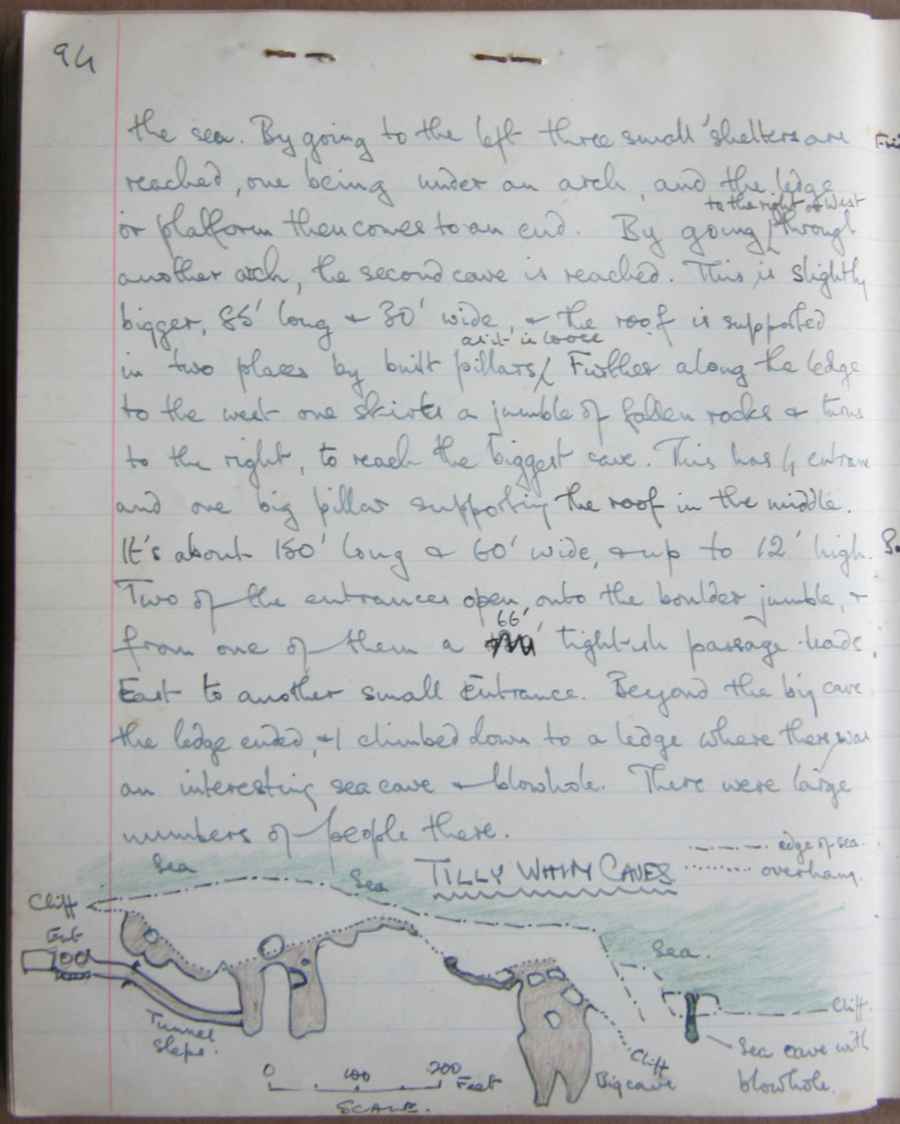 94
the sea. By going to the left three small shelters are
reached, one being under an arch, and the ledge
to the right or West
or platform then comes to an end. By going through
another arch, the second cave is reached. This is slightly
bigger, 85' long & 30' wide, & the roof is supported
as it is loose
in two places by built pillars. Further along the ledge
to the west one skirts a jumble of fallen rocks & turns
to the right, to reach the biggest cave. This has 4 entran
and one big pillar supporting the roof in the middle.
It's about 150' long & 60' wide, & up to 12' high.
Two of the entrances open onto the boulder jumble, &
66'
from one of them a tight-ish passage leads
East to another small Entrance. Beyond the big cave
the ledge ended, & I climbed down to a ledge where there was
an interesting sea cave & blowhole. There were large
numbers of people there.
edge of sea.
Sea
TILLY WHIM CAVES
overhang.
Sea
Cliff
Ent
Sea.
Cliff.
Tunnel
Slope.
Sea cave with
blowhole.
Cliff
Big cave
0 100 200 Feet
SCALE.